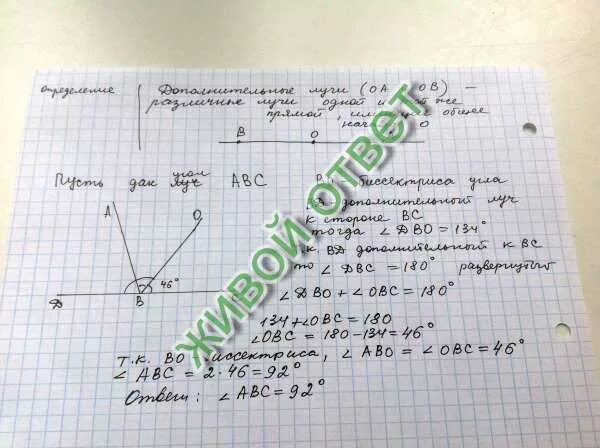 определение
Дополнительные лучи (OA OB) —
различные лучи одной и же
прямой, общее
нача O
B O O
Пусть дан угол
луч ABC B биссектриса угла
дополнительный луч
A O
к стороне BC
тогда ∠DBO = 134°
к BD дополнительный к BC
то ∠DBC = 180° развернутый
46°
D B
∠DBO + ∠OBC = 180°
134 + ∠OBC = 180
∠OBC = 180 - 134 = 46°
т.к. BO биссектриса, ∠ABO = ∠OBC = 46°
∠ABC = 2 · 46 = 92°
Ответ: ∠ABC = 92°
ЖИВОЙ ОТВЕТ